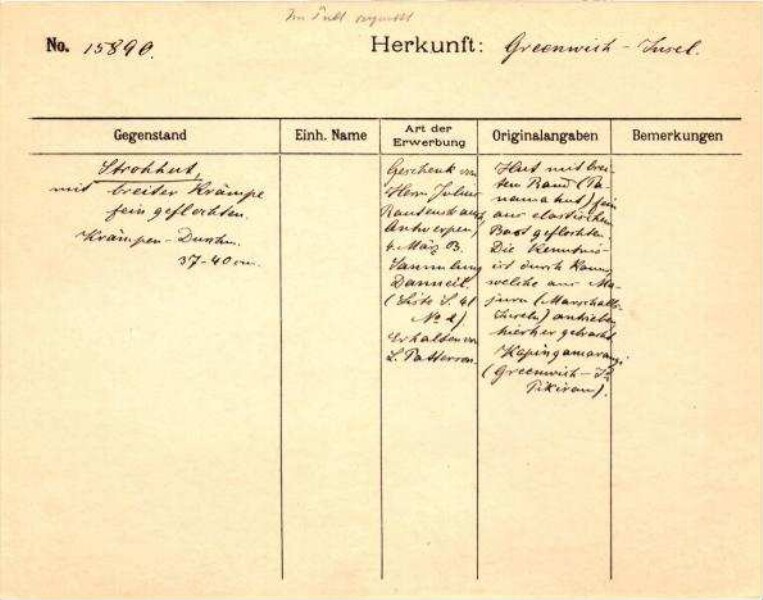 No. 15890.
Herkunft: Greenwich-Insel.
Gegenstand
Einh. Name
Art der Erwerbung
Originalangaben
Bemerkungen
Strohhut,
mit breiter Krämpe
fein geflochten.
Krämpen-Durchm.
37-40 cm.
Geschenk von
Herrn Julius
Rautenstrauch,
Antwerpen,
4. März 13.
Sammlung
Danneil.
(Liste S. 41
No 2).
Erhalten von
L. Patterson.
Hut mit brei-
tem Rand (Pa-
namahut) fein
aus elastischem
Bast geflochten.
Die Kenntnis
ist durch
welche aus Ma-
juru (Marschall-
Inseln) antrieben
hierher gebracht.
Kapingamarangi
(Greenwich-
Pikiram).